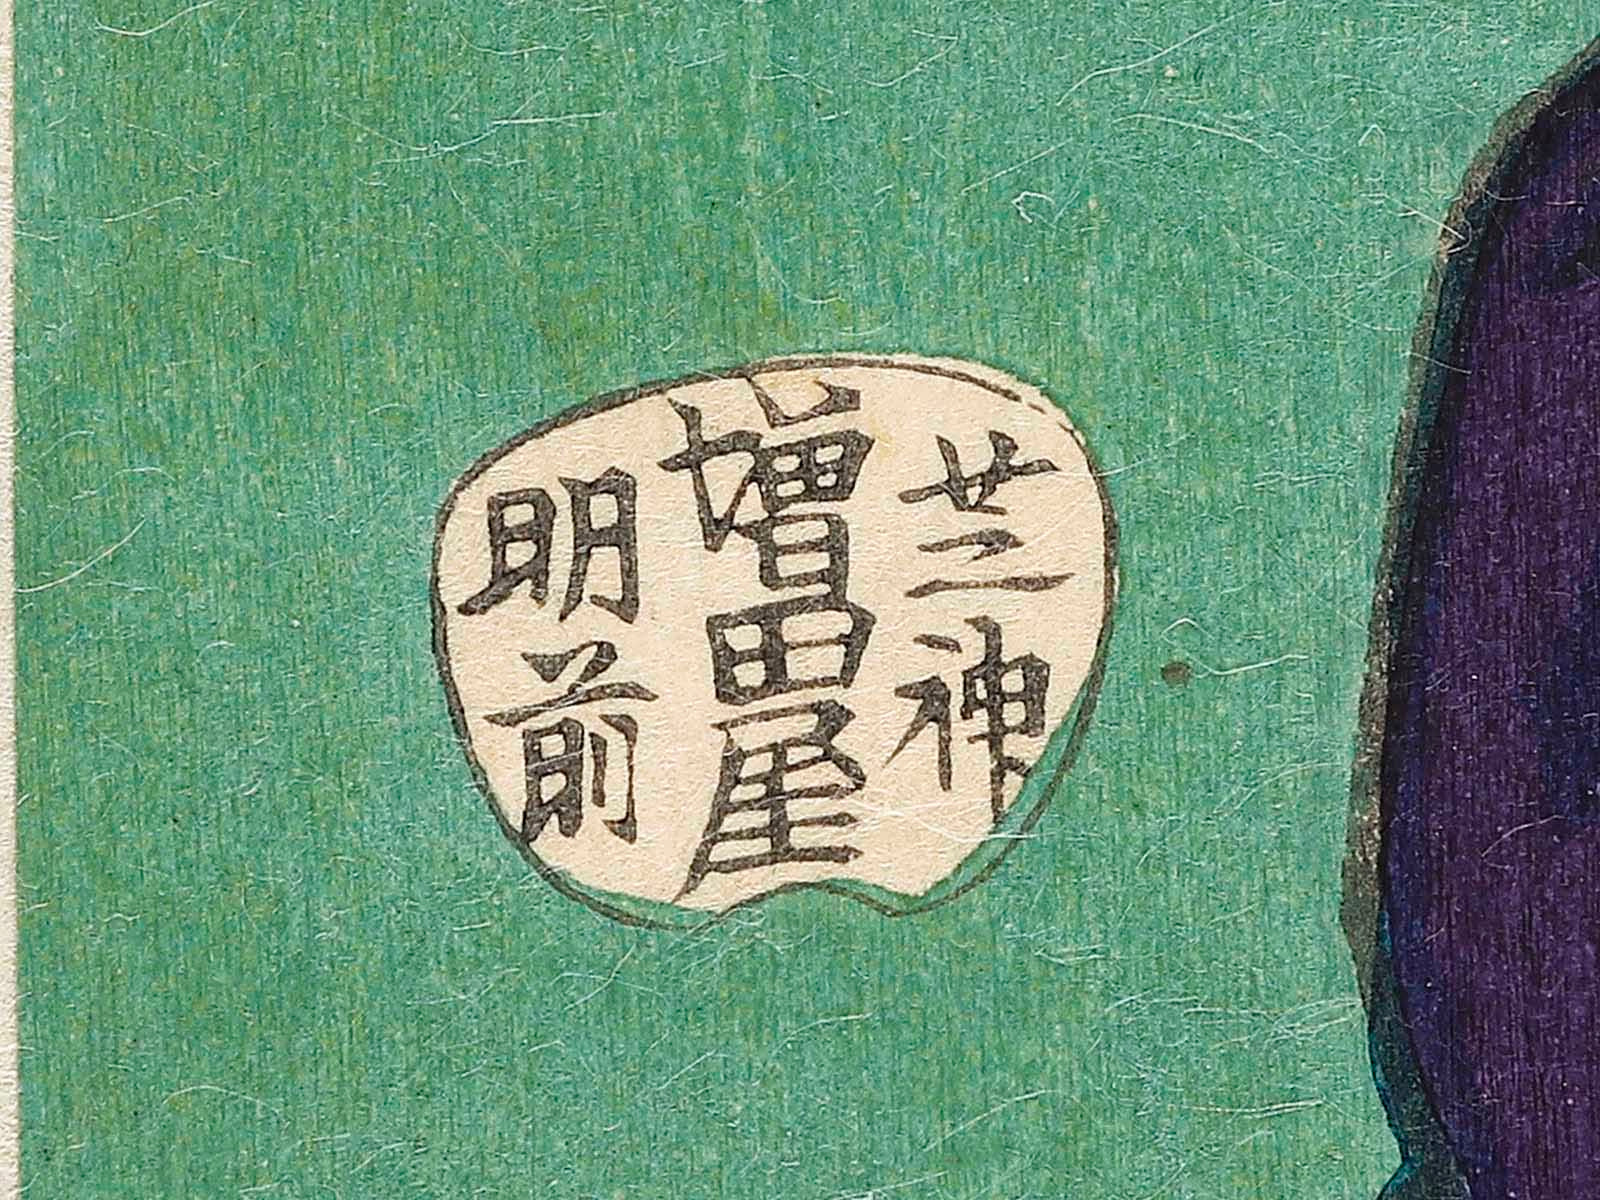 芝神
増田屋
明前